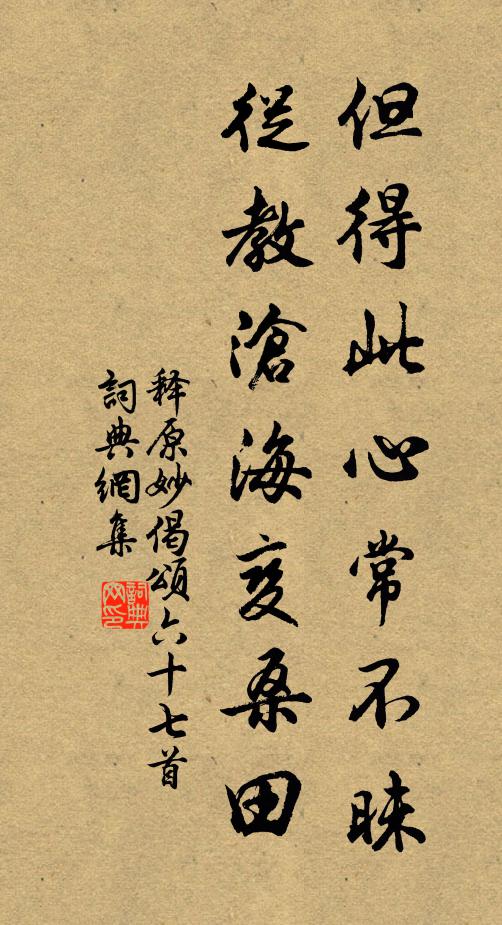 但得此心常不昧
從教滄海变桑田
释原妙偈頌六十七首
詞典網集
詞典网印